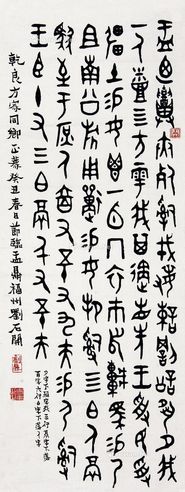 王曰盂廼召夾死司戎敏諫罰訟夙夕我
一人烝四方雩我其遹省先王受民受
疆土易女鬯一卣冂衣巿舄車馬易乃
且南公旂用狩易女邦司四白人鬲自
馭至于庶人六百又五十又九夫
王臣十又三白鬲千又五十夫
乾良方家同鄉正篆 癸丑春日節臨盂鼎 福州劉石開